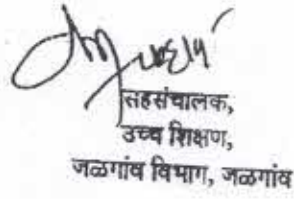 सहसंचालक,
उच्च शिक्षण,
जळगांव विभाग, जळगांव